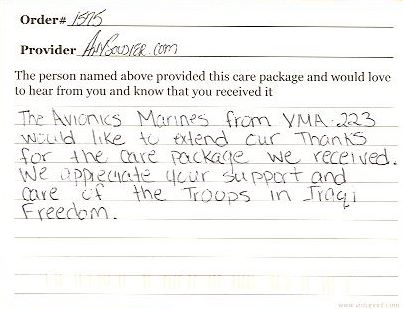 Order# 1575
Provider AnySoldier.com
The person named above provided this care package and would love
to hear from you and know that you received it
The Avionics Marines from VMA-223
would like to extend our Thanks
for the care package we received.
We appreciate your support and
care of the Troops in Iraqi
Freedom.